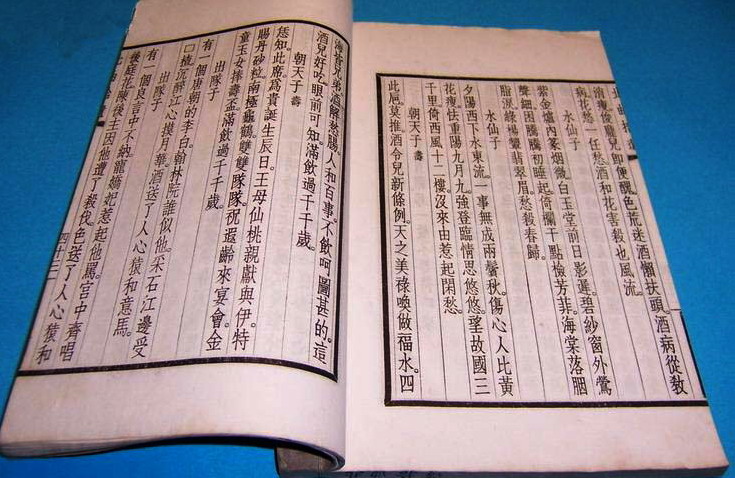 消瘦俊龐兒卽便醒色荒迷酒懶扶頭。酒病從教
病花愁一任愁。酒和花害殺也風流。
水仙子
紫金爐內篆烟微。白玉堂前日影遲。碧紗窗外鶯
聲細。困騰騰初睡起。倚欄干點檢芳菲。海棠落胭
脂淚。綠楊顰翡翠眉。愁殺春歸。
水仙子
夕陽西下水東流。一事無成兩鬢秋。傷心人比黃
花瘦。怯重陽九月九。強登臨情思悠悠。望故國三
千里。倚西風十二樓。沒來由惹起閑愁。
朝天子 壽
此巵。莫推。酒令兒新條例。天之美祿喚做福水。四
海皆兄弟。酒解愁腸。人和百事。不飲呵圖甚的。這
酒兒好吃。眼前可知。滿飲過千千歲。
朝天子 壽
恁知。此席。爲貴誕生辰日。王母仙桃親獻與伊。特
賜丹砂粒。南極龜鶴。雙雙隊隊。祝遐齡來宴會。金
童玉女。捧壽盃。滿飲過千千歲。
出隊子
有一個唐朝的李白。翰林院誰似他。采石江邊受
□楂。沉醉江心摸月華。酒送了人心猿和意馬。
出隊子
有一個良言中不納。寵嬌妃惹起他罵。宮中齊唱
後庭花。陳後主因他遭了殺伐。色送了人心猿和
四十三